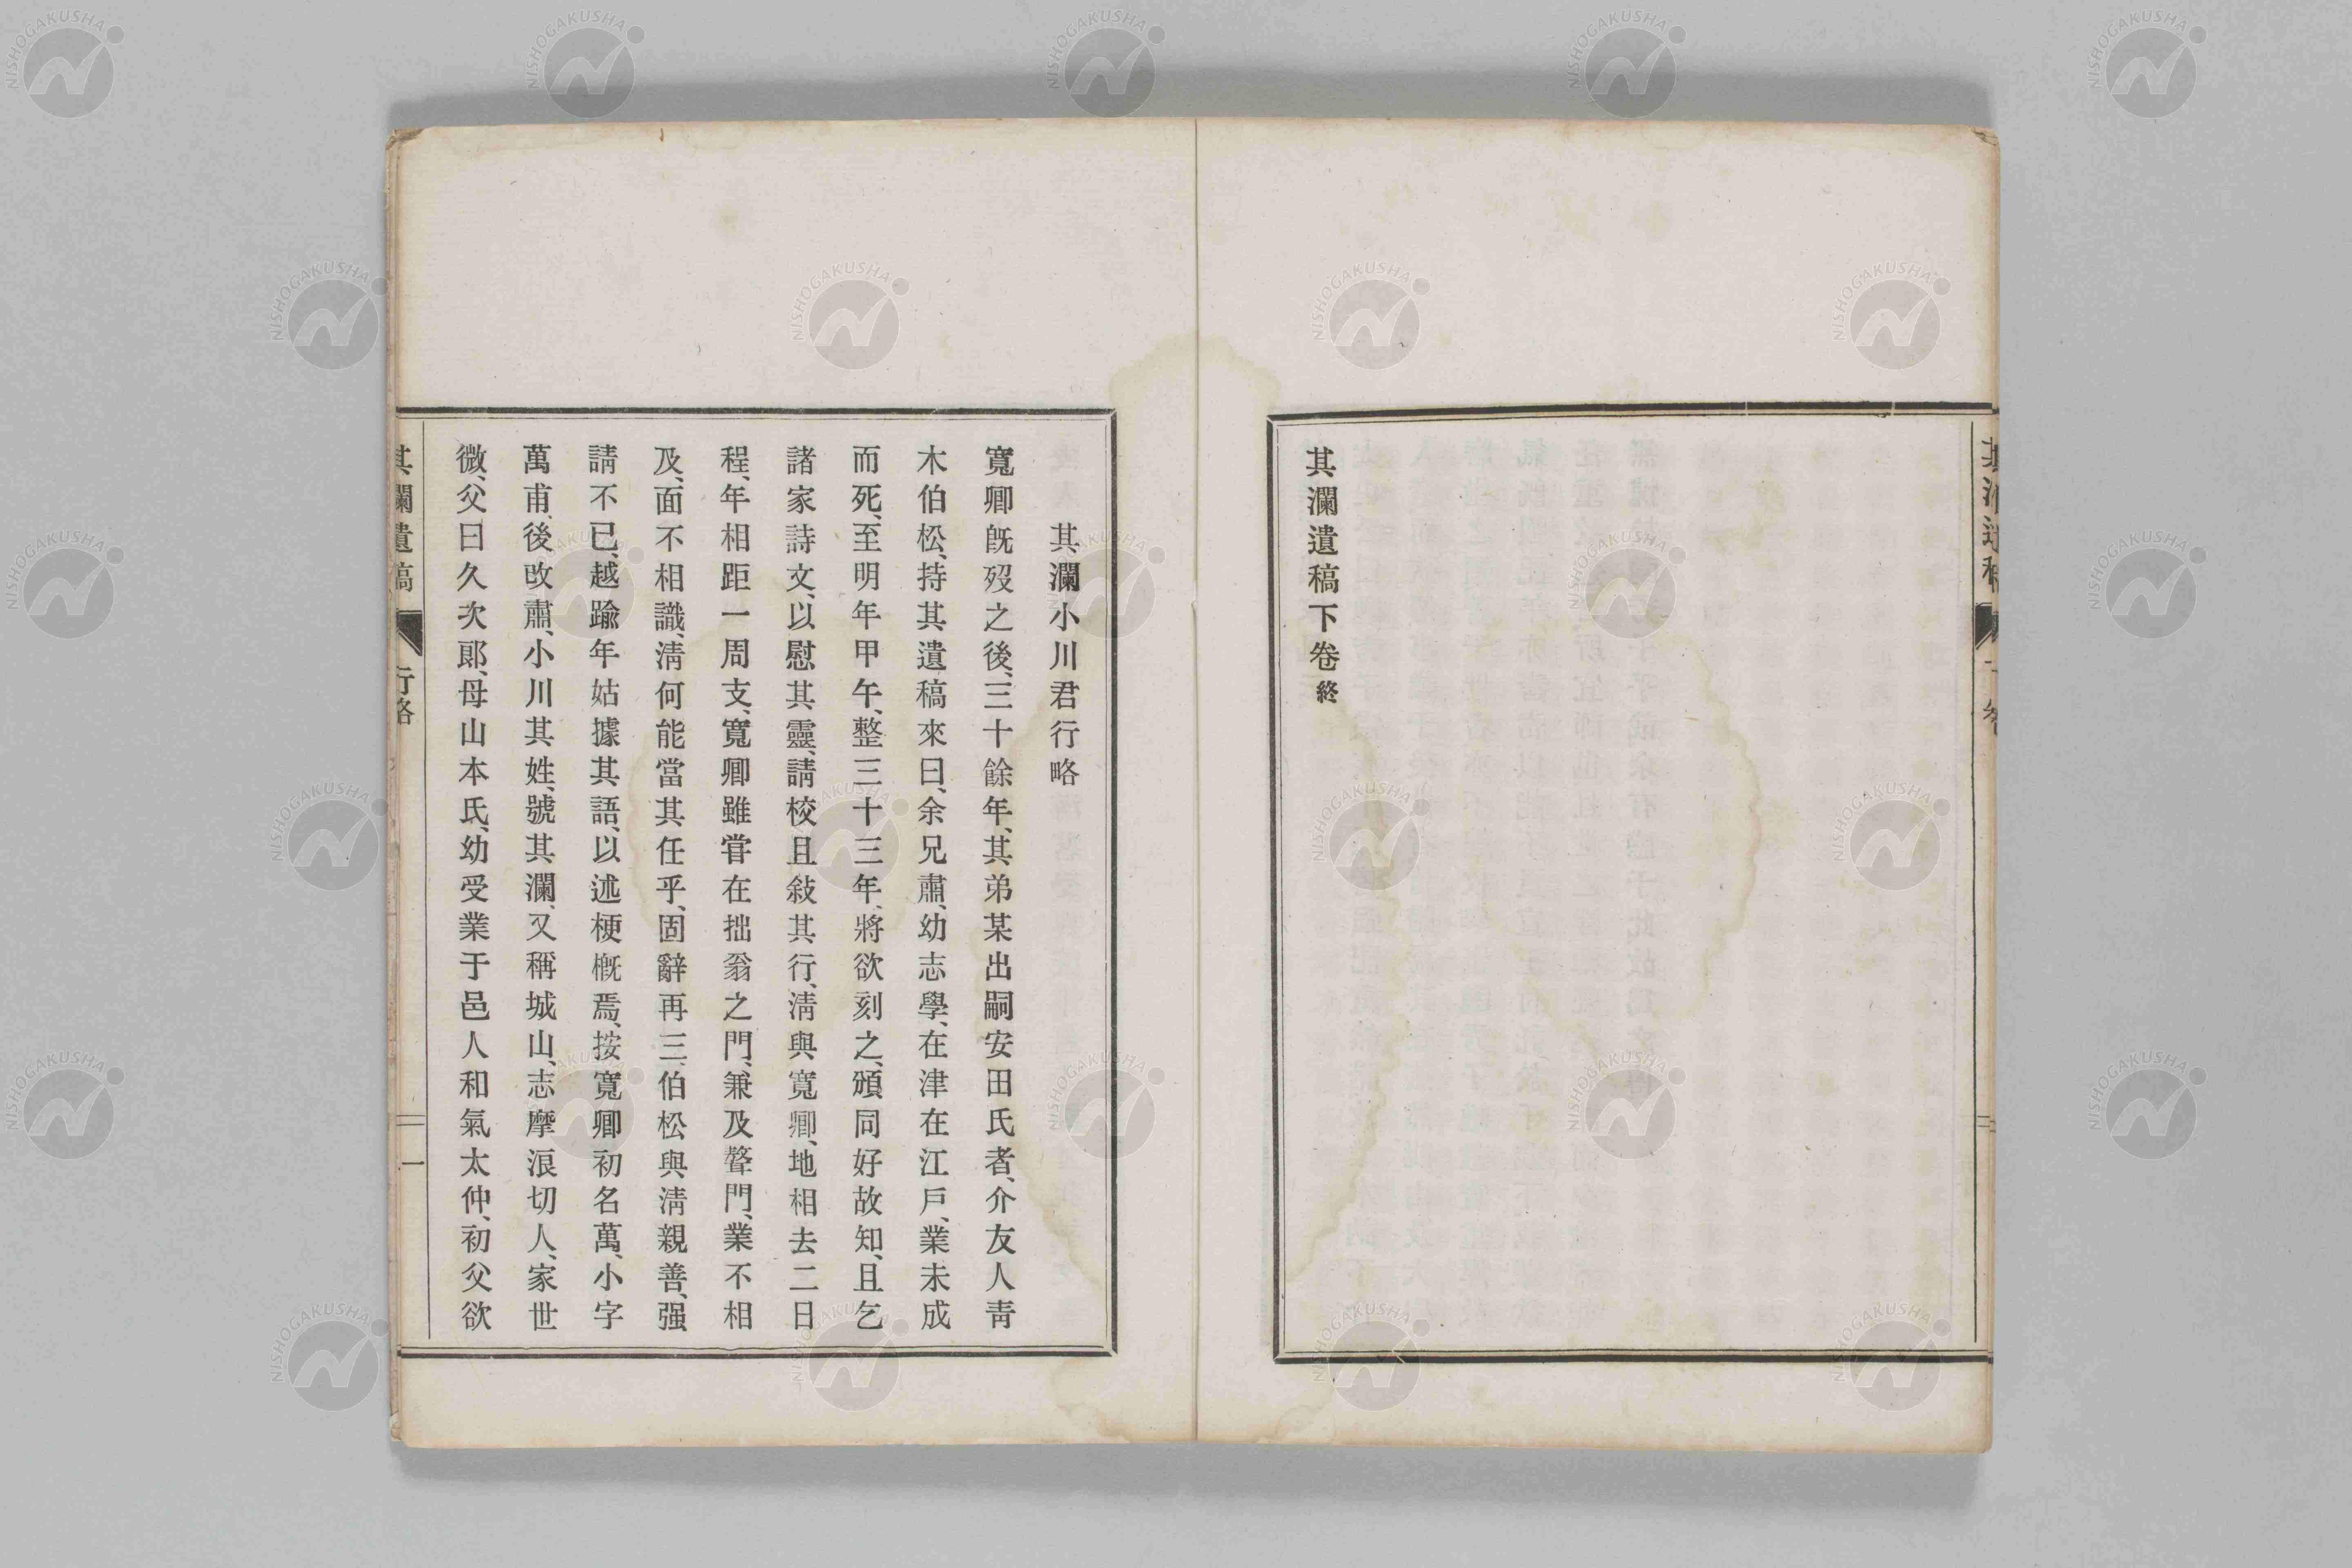 其瀾遺稿下卷終
其瀾小川君行略
寬卿既歿之後、三十餘年、其弟某出嗣安田氏者、介友人靑
木伯松、持其遺稿來曰、余兄肅、幼志學、在津在江戶、業未成
而死、至明年甲午、整三十三年、將欲刻之、頒同好故知、且乞
諸家詩文、以慰其靈、請校且敍其行、淸與寬卿、地相去二日
程、年相距一周支、寬卿雖甞在拙翁之門、兼及聱門、業不相
及、面不相識、淸何能當其任乎、固辭再三、伯松與淸親善、强
請不已、越踰年姑據其語、以述梗槪焉、按寬卿初名萬、小字
萬甫、後改肅、小川其姓、號其瀾、又稱城山、志摩浪切人、家世
微、父曰久次郎、母山本氏、幼受業于邑人和氣太仲、初父欲
其瀾遺稿
行略
一
NISHOGAKUSHA